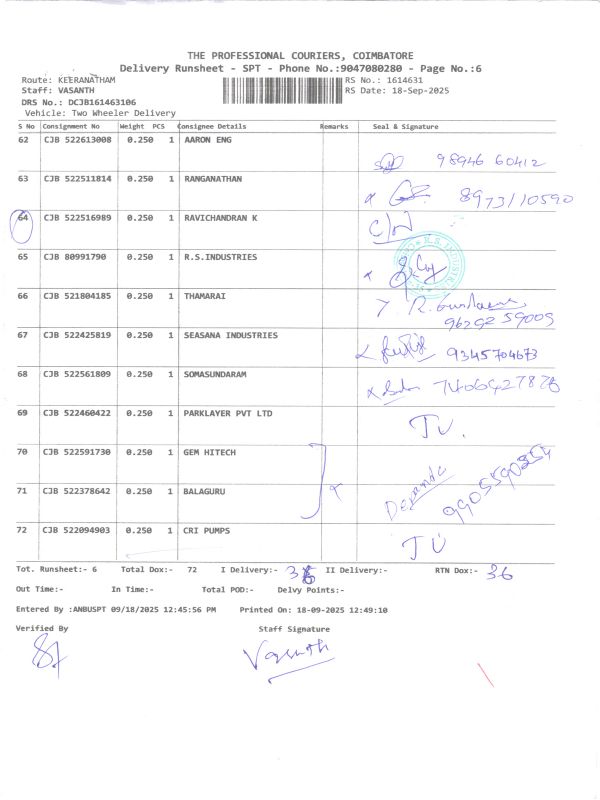 THE PROFESSIONAL COURIERS, COIMBATORE
Delivery Runsheet - SPT - Phone No.:9047080280 - Page No.:6
Route: KEERANATHAM RS No.: 1614631
Staff: VASANTH RS Date: 18-Sep-2025
DRS No.: DCJB161463106
Vehicle: Two Wheeler Delivery
S No Consignment No Weight PCS Consignee Details Remarks Seal & Signature
62 CJB 522613008 0.250 1 AARON ENG 98946 60412
63 CJB 522511814 0.250 1 RANGANATHAN 8973110590
64 CJB 522516989 0.250 1 RAVICHANDRAN K
65 CJB 80991790 0.250 1 R.S.INDUSTRIES
66 CJB 521804185 0.250 1 THAMARAI
96292 59009
67 CJB 522425819 0.250 1 SEASANA INDUSTRIES 9345704673
68 CJB 522561809 0.250 1 SOMASUNDARAM
69 CJB 522460422 0.250 1 PARKLAYER PVT LTD
70 CJB 522591730 0.250 1 GEM HITECH
71 CJB 522378642 0.250 1 BALAGURU
72 CJB 522094903 0.250 1 CRI PUMPS
Tot. Runsheet:- 6 Total Dox:- 72 I Delivery:- 36 II Delivery:- RTN Dox:- 36
Out Time:- In Time:- Total POD:- Delvy Points:-
Entered By :ANBUSPT 09/18/2025 12:45:56 PM Printed On: 18-09-2025 12:49:10
Verified By Staff Signature
Vasanth